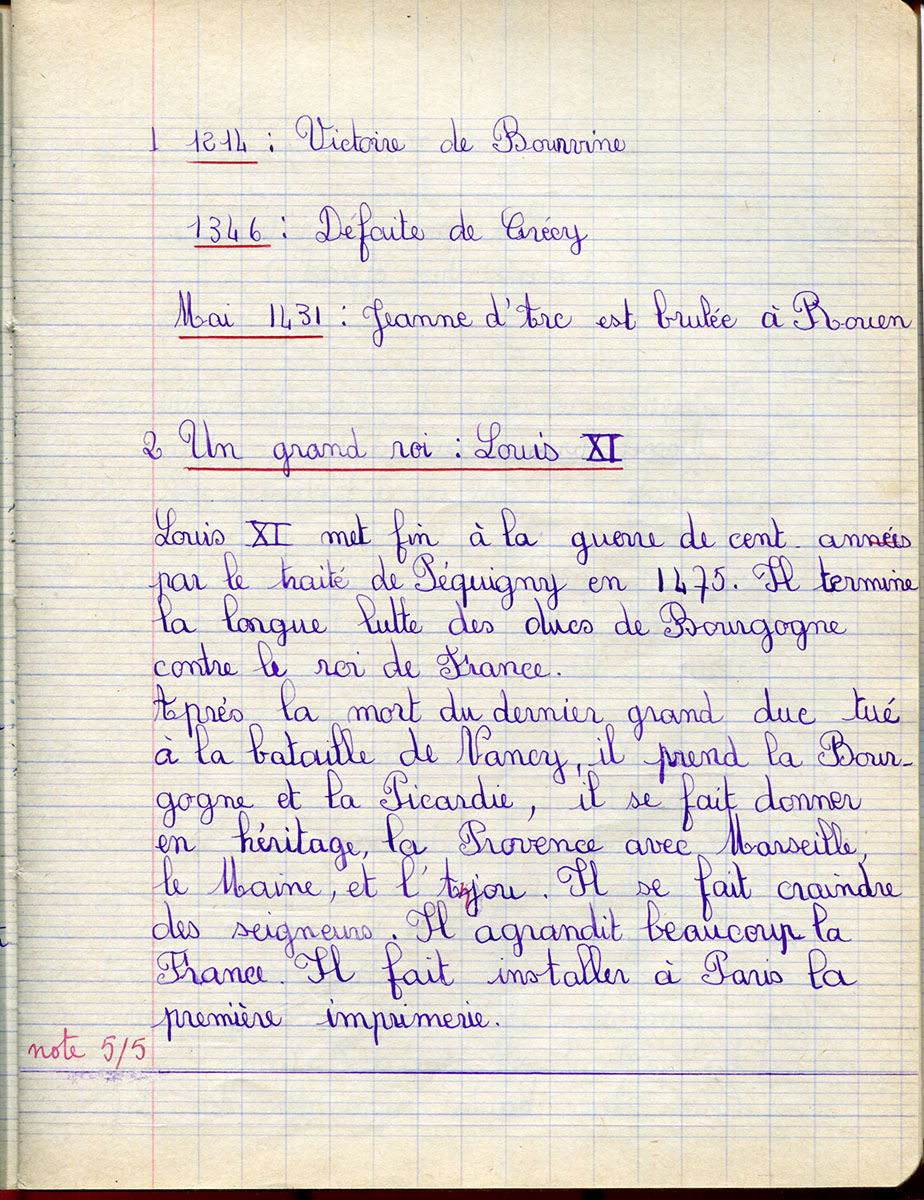 1 1214 : Victoire de Bouvine
1346 : Défaite de Crécy
Mai 1431 : Jeanne d'Arc est brulée à Rouen
2 Un grand roi : Louis XI
Louis XI met fin à la guerre de cent années
par le traité de Péquigny en 1475. Il termine
la longue lutte des ducs de Bourgogne
contre le roi de France.
Après la mort du dernier grand duc tué
à la bataille de Nancy, il prend la Bour-
gogne et la Picardie, il se fait donner
en héritage, la Provence avec Marseille,
le Maine, et l'Anjou. Il se fait craindre
des seigneurs. Il agrandit beaucoup la
France. Il fait installer à Paris la
première imprimerie.
note 5/5